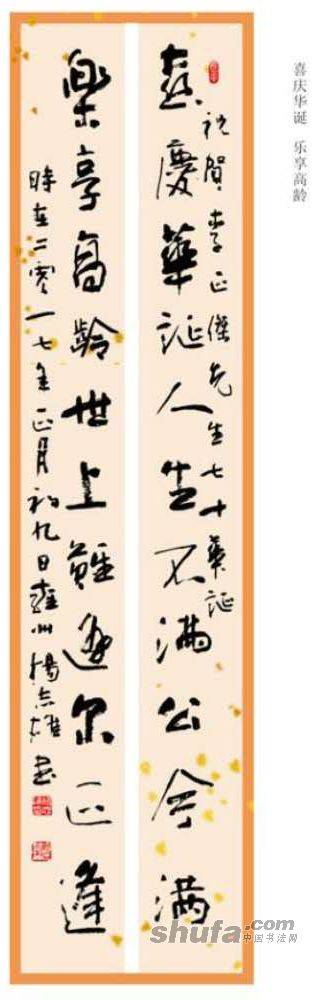 喜庆华诞 乐享高龄
喜慶華誕人生不滿公今滿
祝賀李正傑先生七十華誕
樂享高齡世上難逢尔正逢
時在二零一七年正月初九日雍州楊志雄書
shufa.com
中国书法网